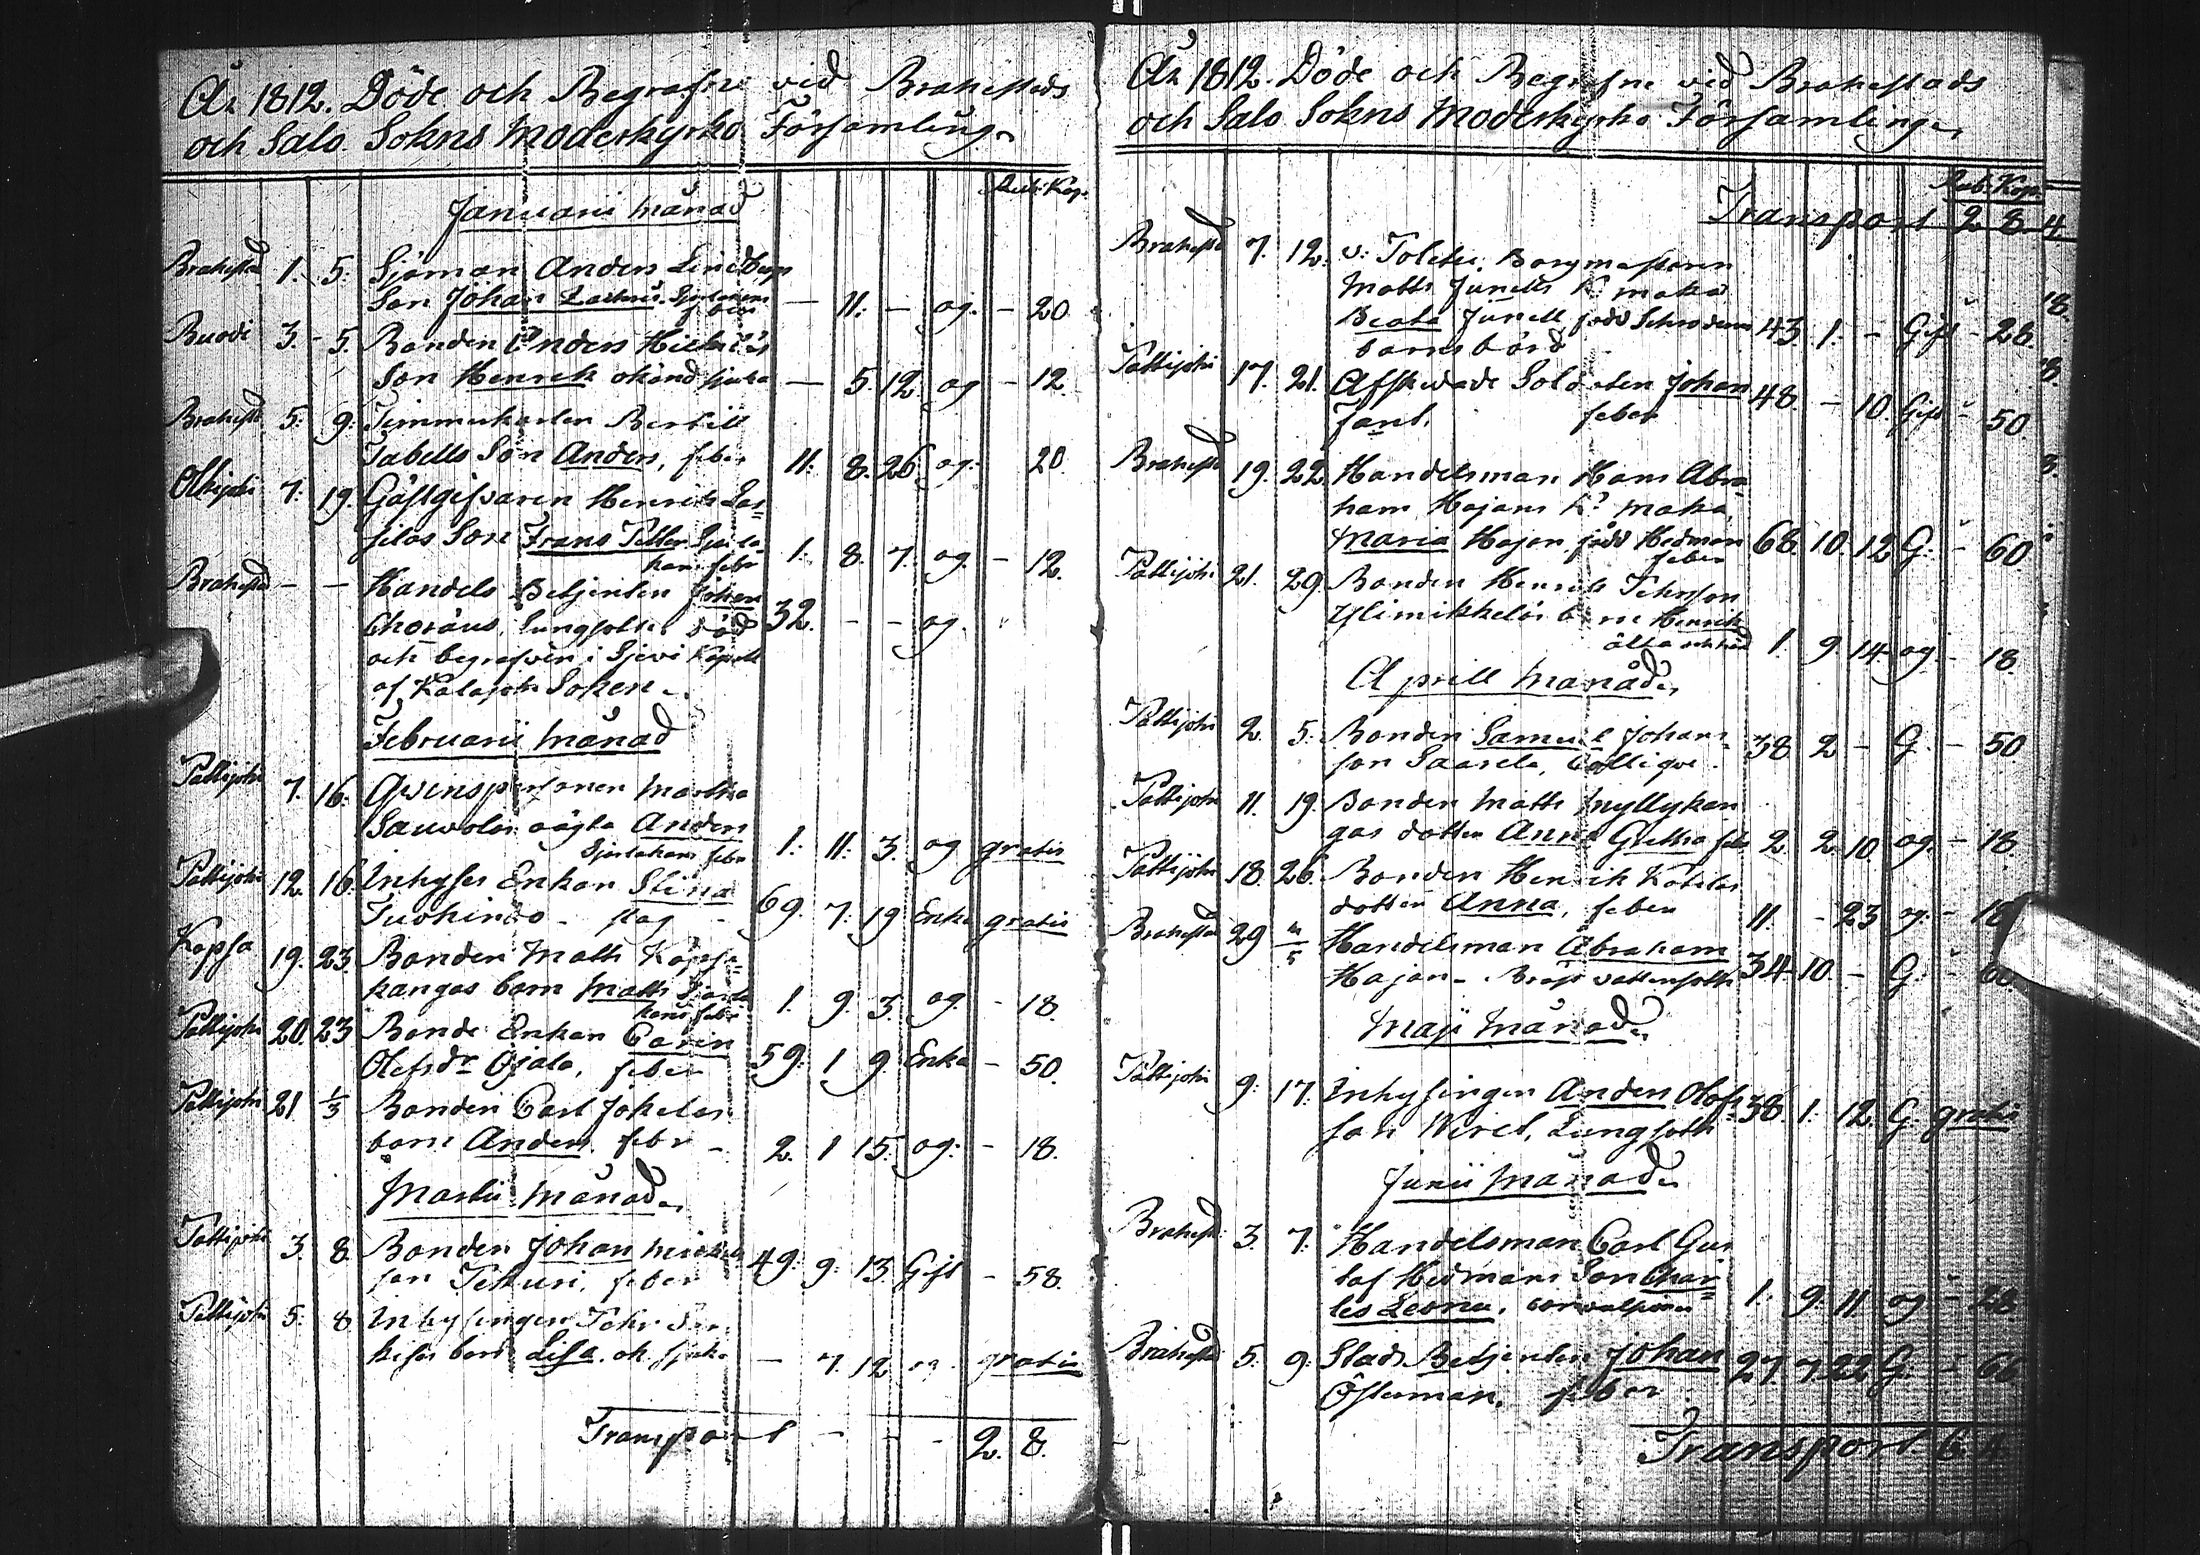 År 1812. Döde och Begrafne vid Brahestads
och Salo Sokns Moderkyrko Församling.
Rub. Kop.
Januarii månad
Brahestad 1. 5. Sjöman Anders Lindbergs
Son Johan — 11. — og. — 20
3. 5. Bonden Anders
Son Henrik okänd sjuka — 5. 12 og — 12.
Brahestad 5. 9. Timmerkarlen Bertill
Tabells Son Anders, feber 11. 8. 26 og. 20.
Olkijoki 7. 19. Gästgifvaren Henrik Las=
silas Son Frans Petter 1. 8. 7. og. — 12.
Brahestad — — Handels Betjenten Johan 32. — — og.
Choräus, Lungsot död
och begrafven i Sjevi Kapell
af Kalajoki Soken.
Februarii månad
Pattijoki 7. 16. Qvinspersonen Martha
oägta Anders 1. 11. 3. og gratis
Pattijoki 12. 16. Inhyses Enkan Stina
slag — 69. 7. 19 Enka gratis
Kopsa 19. 23. Bonden Matts Kopsa=
kangas barn Matts 1. 9. 3. og. — 18.
Pattijoki 20. 23 Bonde Enkan Carin
Olofsdr Ojala, feber 59. 1 9. Enka — 50.
Pattijoki 21 1/3 Bonden Carl Jokelas
barn Anders. feber — 2. 1 15. og. — 18.
Martii månad.
Pattijoki 3. 8. Bonden Johan Mickels
son Tekuri, feber 49. 9. 13. Gift — 58.
Pattijoki 5. 8. Inhysingen
barn Lisa. ok. sjuka — 7. 12 og. gratis
Transport — — — 2. 8.
År 1812. Döde och Begrafne vid Brahestads
och Salo Sokns Moderkyrko Församling.
Rub. Kop.
Transport 2 8 4
Brahestad 7. 12. Borgmästaren
Matts Junells K. maka
Beata Junell född 43. 1. — Gift — 28.
barnsbörd
Pattijoki 17. 21. Afskedade Soldaten Johan 48. — 10. Gift — 50.
feber
Brahestad 19. 22 Handelsman Hans Abra=
ham Hajans K. maka
Maria Hajan, född Hedman 68. 10. 12 G. — 60
feber
Pattijoki 21. 29. Bonden Henrik
Ylimikkeläs barn Henrik
1. 9. 14. og. — 18.
Aprill månad.
Pattijoki 2. 5. Bonden Samuel Johans=
son Saarela, Collique. 38 2 — G. — 50
Pattijoki 11. 19. Bonden Matts Myllykan
gas dotter Anna Gretha feber 2 2. 10. og. — 18.
Pattijoki 18. 26. Bonden Henrik
dotter Anna, feber 11. — 23 og. — 18
Brahestad 29 Handelsman Abraham 34. 10. — G. — 60
Hajan. Bröst vattensot
Maji månad.
Pattijoki 9. 17. Inhysingen Anders Olofs 38. 1. 12. G. gratis
son Wiret, Lungsot
Junii månad.
Brahestad 3. 7. Handelsman Carl Gus
taf Hedmans Son Char=
les Leonu, 1. 9. 11 og —
Brahestad 5. 9. Stads Betjenten Johan 27 7 22 G. — 66
Österman, feber
Transport 6 4